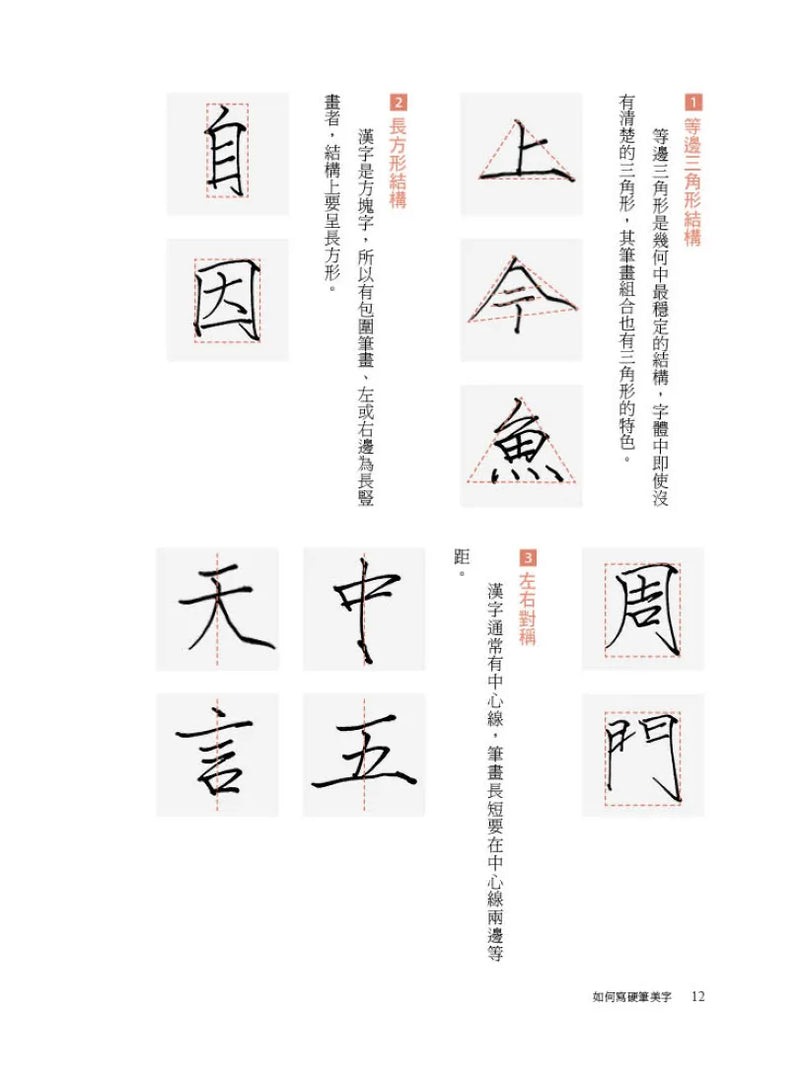 1 等邊三角形結構
等邊三角形是幾何中最穩定的結構，字體中即使沒
有清楚的三角形，其筆畫組合也有三角形的特色。
上
今
魚
2 長方形結構
漢字是方塊字，所以有包圍筆畫、左或右邊為長豎
畫者，結構上要呈長方形。
自
因
周
門
3 左右對稱
漢字通常有中心線，筆畫長短要在中心線兩邊等
距。
中
五
天
言
如何寫硬筆美字 12